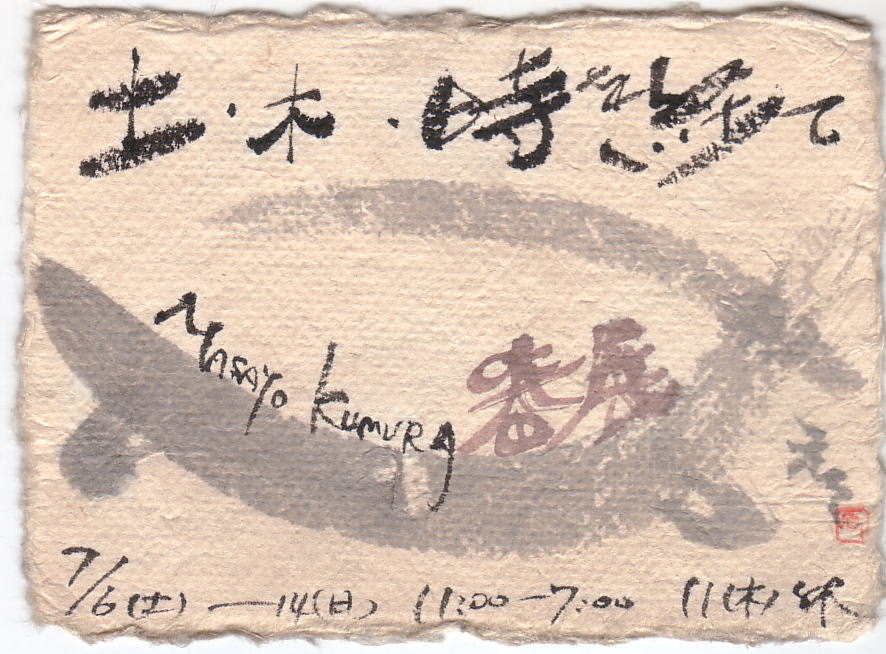 土・木・時を経て
Masayo Kumura
番展
7/6(土)—14(日) 11:00—7:00 11(木)休